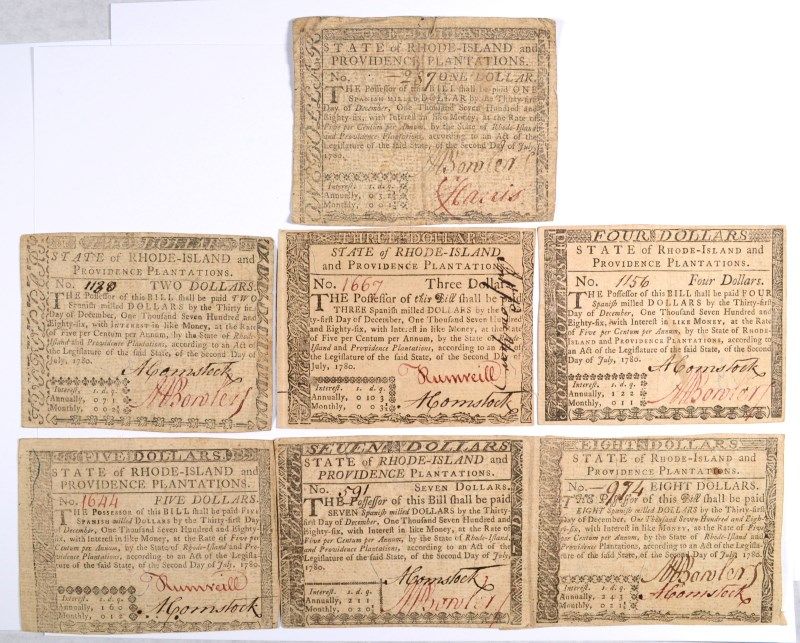 STATE of RHODE-ISLAND and
PROVIDENCE PLANTATIONS.
No. 287 ONE DOLLAR.
THE Possessor of this BILL shall be paid ONE
SPANISH MILLED DOLLAR by the Thirty-first
Day of December, One Thousand Seven Hundred and
Eighty-six, with Interest in like Money, at the Rate of
Five per Centum per Annum, by the State of Rhode-Island
and Providence Plantations, according to an Act of the
Legislature of the said State, of the Second Day of July,
1780.
ABowler
CHarris
Interest. s. d. q.
Annually,
Monthly,
STATE of RHODE-ISLAND and
PROVIDENCE PLANTATIONS.
No. 1128 TWO DOLLARS.
THE Possessor of this BILL shall be paid TWO
Spanish milled DOLLARS by the Thirty-first
Day of December, One Thousand Seven Hundred and
Eighty-six, with INTEREST in like Money, at the Rate
of Five per Centum per Annum, by the State of Rhode-
Island and Providence Plantations, according to an Act of
the Legislature of the said State, of the Second Day of
July, 1780.
AComstock
ABowler
Interest. s. d. q.
Annually,
Monthly,
THREE DOLLARS
STATE of RHODE-ISLAND,
and PROVIDENCE PLANTATIONS.
No. 1667 Three Dollars.
THE Possessor of this Bill shall be
paid THREE Spanish milled DOLLARS by the
Thirty-first Day of December, One Thousand Seven Hundred
and Eighty-six, with Interest in like Money, at the Rate
of Five per Centum per Annum, by the State of Rhode-
Island and Providence Plantations, according to an Act of
the Legislature of the said State, of the Second Day of
July, 1780.
Rumreill
AComstock
Interest. s. d. q.
Annually, 0 10 3
Monthly, 0 0 3
FOUR DOLLARS
STATE of RHODE-ISLAND and
PROVIDENCE PLANTATIONS.
No. 1156 Four Dollars.
THE Possessor of this BILL shall be paid FOUR
Spanish milled DOLLARS by the Thirty-first
Day of December, One Thousand Seven Hundred and
Eighty-six, with Interest in LIKE MONEY, at the Rate
of Five per Centum per Annum, by the State of RHODE-
ISLAND and PROVIDENCE PLANTATIONS, according to
an Act of the Legislature of the said State, of the
Second Day of July, 1780.
AComstock
ABowler
Interest. s. d. q.
Annually, 1 2 2
Monthly, 0 1 1
FIVE DOLLARS
STATE of RHODE-ISLAND and
PROVIDENCE PLANTATIONS.
No. 1644 FIVE DOLLARS.
THE POSSESSOR of this BILL shall be paid FIVE
SPANISH milled DOLLARS by the Thirty-first Day of
December, One Thousand Seven Hundred and Eighty-
six, with Interest in like Money, at the Rate of Five per
Centum per Annum, by the State of Rhode-Island and Providence
Plantations, according to an Act of the Legislature
of the said State, of the Second Day of July, 1780.
Rumreill
AComstock
Interest. s. d. q.
Annually, 1 6 0
Monthly, 0 1 2
SEVEN DOLLARS
STATE of RHODE-ISLAND and
PROVIDENCE PLANTATIONS.
No. 591 SEVEN DOLLARS.
THE Possessor of this Bill shall be paid
SEVEN Spanish milled DOLLARS by the Thirty-
first Day of December, One Thousand Seven Hundred and
Eighty-six, with Interest in like Money, at the Rate of
Five per Centum per Annum, by the State of Rhode-Island,
and Providence Plantations, according to an Act of the
Legislature of the said State, of the Second Day of July,
1780.
AComstock
ABowler
Interest. s. d. q.
Annually, 2 1 1
Monthly, 0 2 0
EIGHT DOLLARS
STATE of RHODE-ISLAND and
PROVIDENCE PLANTATIONS.
No. 974 EIGHT DOLLARS.
THE Possessor of this Bill shall be paid
EIGHT Spanish milled DOLLARS by the Thirty-first
Day of December, One Thousand Seven Hundred and Eighty-
six, with Interest in like Money, at the Rate of Five
per Centum per Annum, by the State of Rhode-Island
and Providence Plantations, according to an Act of the
Legislature of the said State, of the Second Day of July, 1780.
ABowler
AComstock
Interest. s. d. q.
Annually, 2 4 3
Monthly, 0 2 1